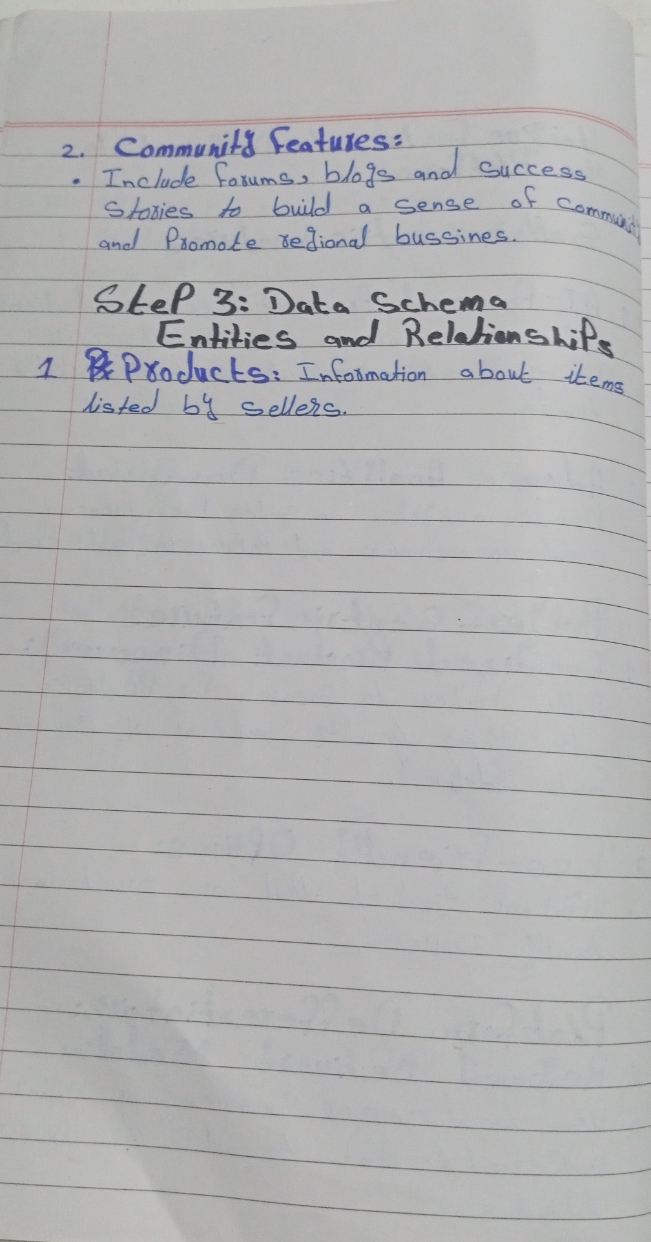 2. Community Features:
• Include forums, blogs and success
stories to build a sense of Communit
and Promote regional bussines.
Step 3: Data Schema
Entities and Relationships
1 Products: Information about items
listed by sellers.